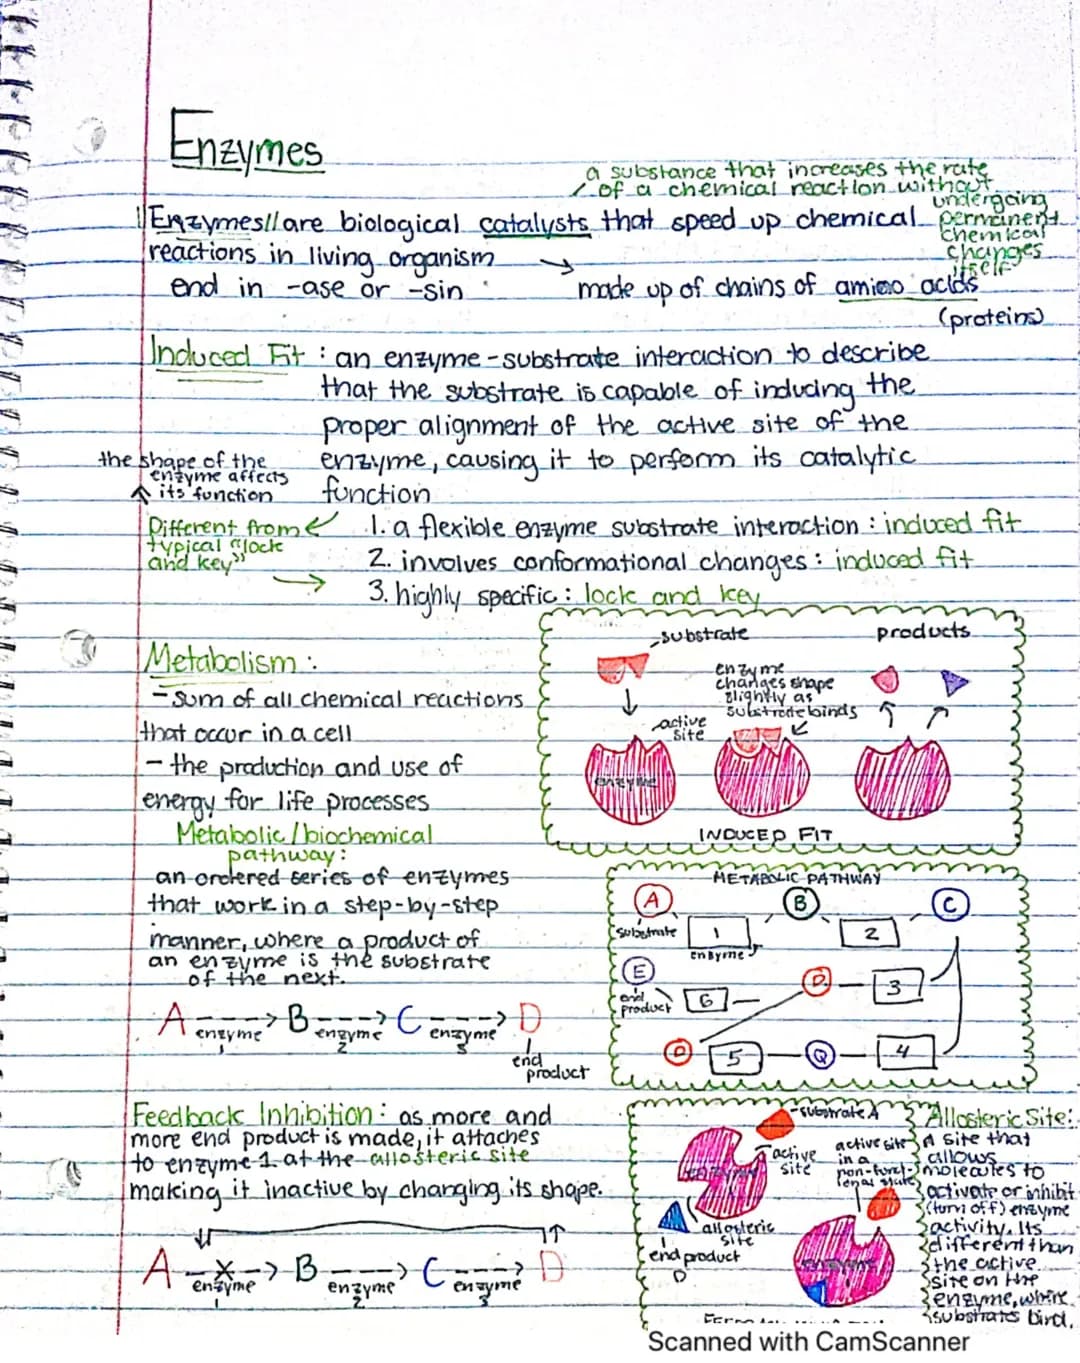 Enzymes
a substance that increases the rate
of a chemical reaction without
undergoing
permanent
chemical
changes
itself
Enzymes are biological catalysts that speed up chemical
reactions in living organism →
end in -ase or -sin
made up of chains of amino acids
(proteins)
Induced Fit : an enzyme-substrate interaction to describe
that the substrate is capable of inducing the
proper alignment of the active site of the
enzyme, causing it to perform its catalytic
function
the shape of the
enzyme affects
its function
Different from
typical "lock
and key"
1. a flexible enzyme substrate interaction : induced fit
2. involves conformational changes : induced fit
3. highly specific : lock and key
substrate
products
enzyme
changes shape
slightly as
substrate binds
active
site
enzyme
INDUCED FIT
Metabolism :
- sum of all chemical reactions
that occur in a cell
- the production and use of
energy for life processes
Metabolic/biochemical
pathway :
an ordered series of enzymes
that work in a step-by-step
manner, where a product of
an enzyme is the substrate
of the next.
A ----> B ----> C ----> D
enzyme 1 enzyme 2 enzyme 3
end
product
METABOLIC PATHWAY
A B C
substrate 1 2
enzyme
E D 3
end
product 6
D 5 Q 4
Feedback Inhibition : as more and
more end product is made, it attaches
to enzyme 1 at the allosteric site
making it inactive by changing its shape.
A -x-> B ---> C ---> D
enzyme 1 enzyme 2 enzyme 3
substrate A
active
site
enzyme
allosteric
site
end product
D
active site
in a
Allosteric Site :
A site that
allows
molecules to
activate or inhibit
(turn off) enzyme
activity. Its
different than
the active
site on the
enzyme, where
substrates bind.
Scanned with CamScanner